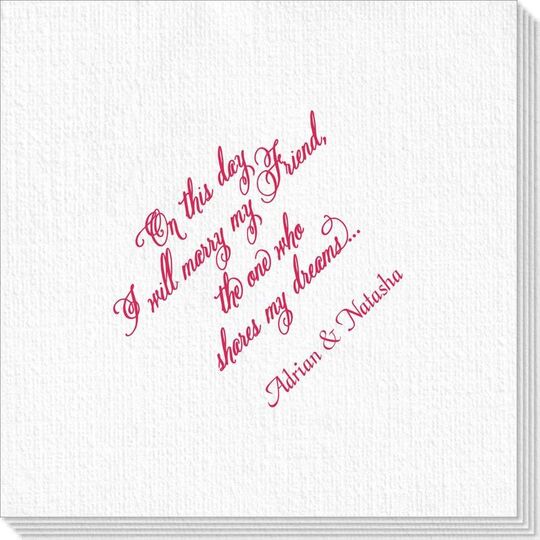 On this day
I will marry my Friend,
the one who
shares my dreams...
Adrian & Natasha